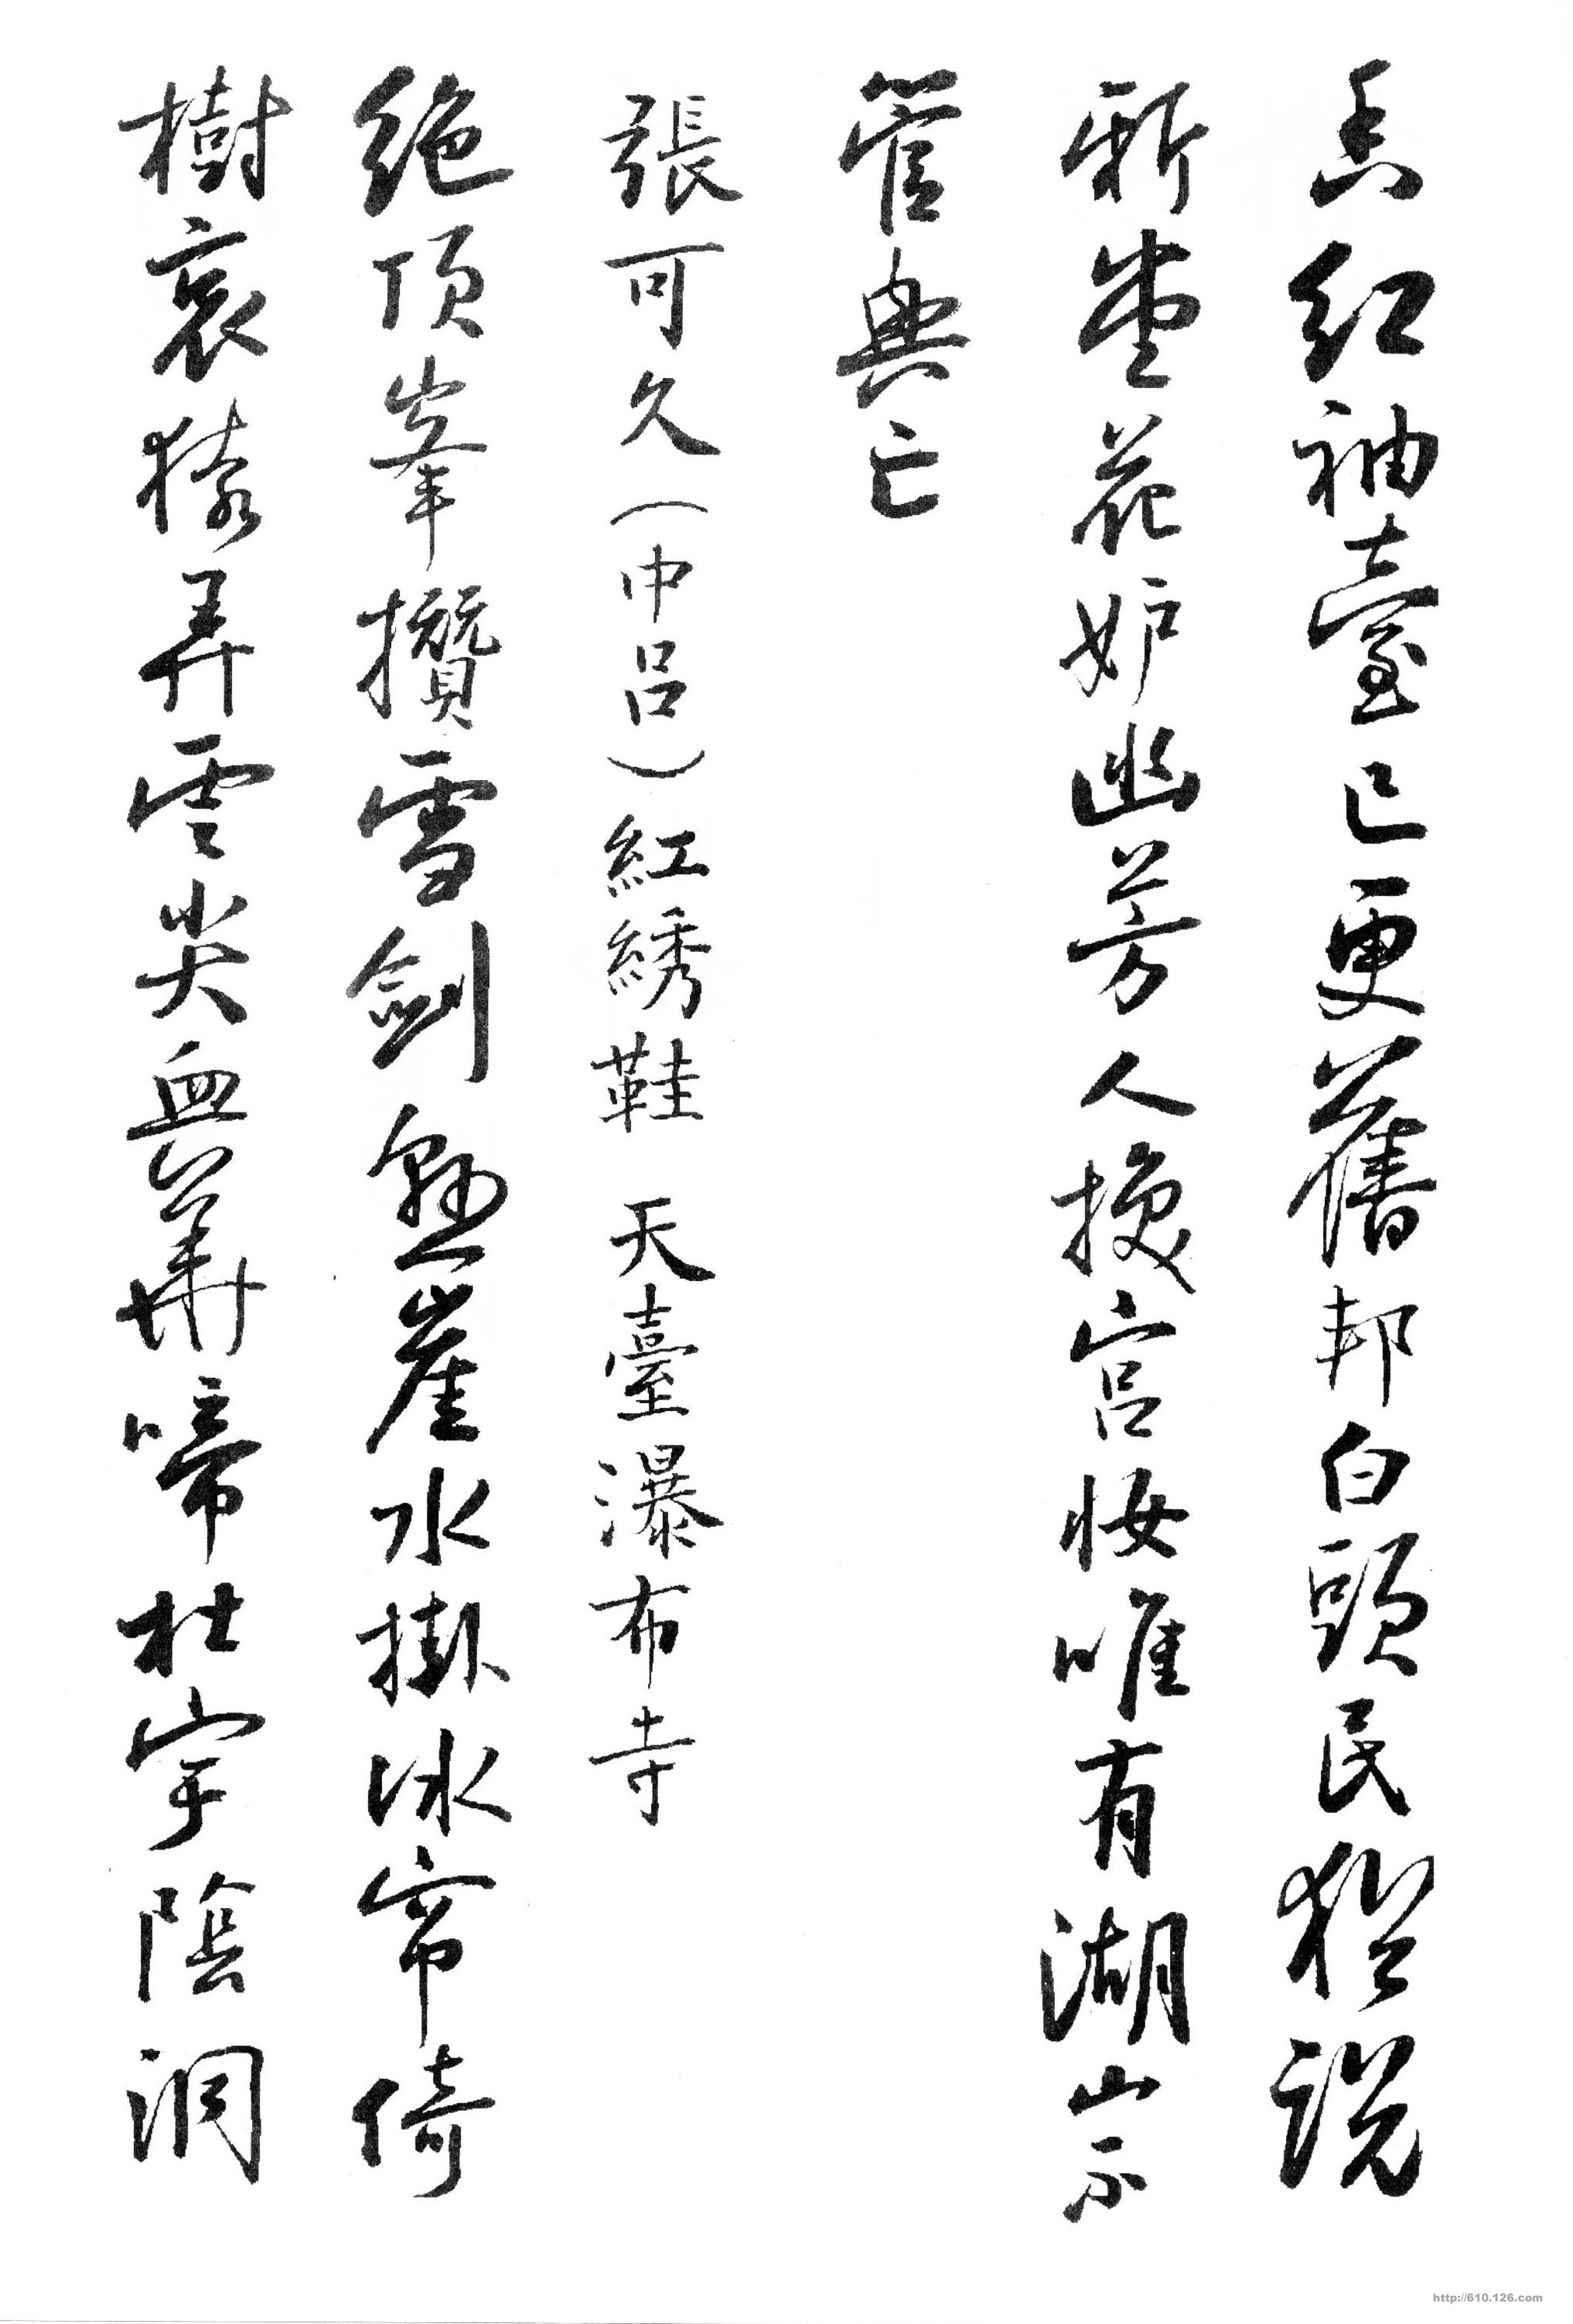 香紅袖臺已更舊邦白頭民猶說
新堂花妒幽芳人換宮妝唯有湖山不
管興亡
張可久（中呂）紅綉鞋 天臺瀑布寺
絶頂峯攢雪劍懸崖水掛冰帘倚
樹哀猿弄雲尖血華啼杜宇陰洞
http://610.126.com